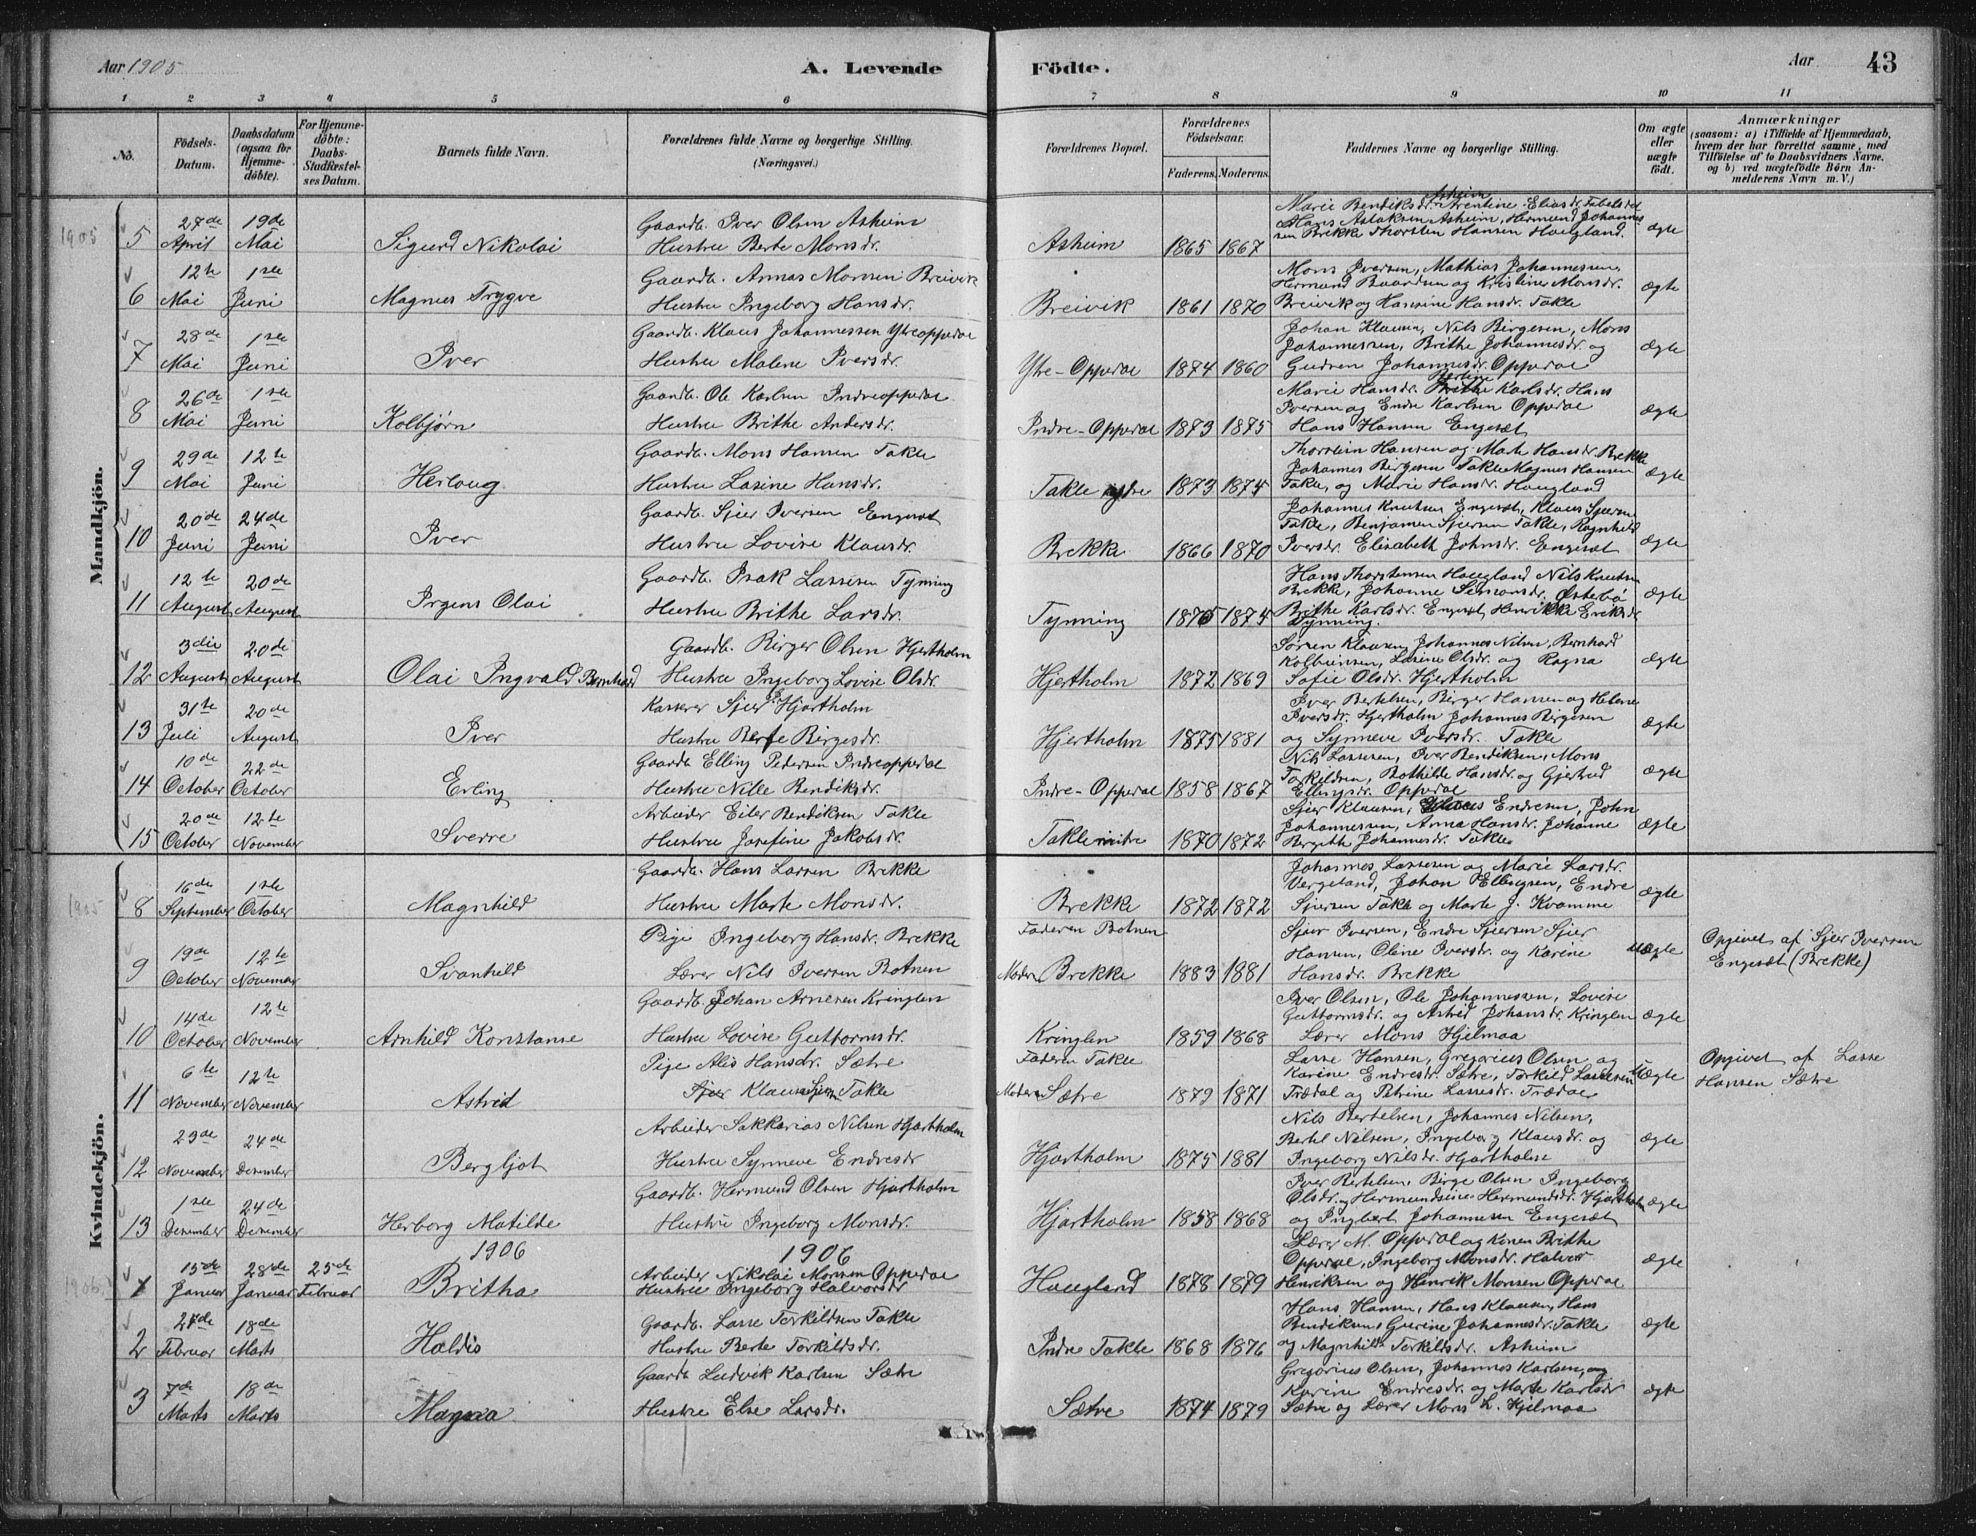 Aar 1905
A. Levende
Födte.
Aar
43
1 2 3 4 5 6 7 8 9 10 11
No.
Födsels-Datum.
Daabsdatum (ogsaa for Hjemme-döbte).
For Hjemme-döbte: Daabs-Stadfæstel-ses Datum.
Barnets fulde Navn.
Forældrenes fulde Navne og borgerlige Stilling.
(Næringsvei.)
Forældrenes Bopæl.
Forældrenes Födselsaar.
Faderens. Moderens.
Faddernes Navne og borgerlige Stilling.
Om ægte eller uægte födt.
Anmærkninger
(saasom: a) i Tilfælde af Hjemmedaab, hvem der har forrettet samme, med Tilföielse af to Daabsvidners Navne, og b) ved uægtefödte Börn An-melderens Navn m. V.)
Mandkjön.
1905
5 27de April 19de Mai Sigurd Nikolai
Gaardb. Iver Olsen Asheim
Hustru Berte Monsdr.
Asheim 1865 1867
Marie Bendiksdr. Asheim Arentine Eliasdr.
Hans Aslaksen Asheim, Hermund Johannes
sen Brekke Thorsten Hansen Haugland.
ægte
6 12te Mai 1ste Juni Magnus Trygve
Gaardb. Annas Monsen Breivik
Hustru Ingeborg Hansdr.
Breivik 1861 1870
Mons Iversen, Mathias Johannessen,
Hermund Baardsen og Kristine Monsdr.
Breivik og Hansine Hansdr. Takle
ægte
7 28de Mai 1ste Juni Iver
Gaardb. Klaus Johannessen Ytreoppedal
Hustru Malene Iversdr.
Ytre-Oppedal 1874 1860
Johan Klausen, Nils Birgesen, Mons
Johannessen, Brithe Johannesdr. og
Gudrun Johannesdr. Oppedal
ægte
8 26de Mai 1ste Juni Kolbjørn
Gaardb. Ole Karlsen Indreoppedal
Hustru Brithe Andersdr.
Indre-Oppedal 1873 1875
Marie Hansdr. Brithe Karlsdr. Hans
Iversen og Endre Karlsen Oppedal
Hans Hansen Engesæt
ægte
9 29de Mai 12te Juni Herlaug
Gaardb. Mons Hansen Takle
Hustru Lasine Hansdr.
Takle 1873 1874
Thorstein Hansen og Marte Hansdr. Brekke
Johannes Birgesen Takle Magnus Hansen
Takle, og Marie Hansdr. Haugland
ægte
10 20de Juni 24de Juni Iver
Gaardb. Sjur Iversen Engesæt
Hustru Lovise Klausdr.
Brekke 1866 1870
Johannes Knutsen Engesæt, Klaus Sjursen
Takle, Benjamin Sjursen Takle, Ragnhild
Iversdr. Elisabeth Johnsdr. Engesæt
ægte
11 12te August 20de August Irgens Olai
Gaardb. Isak Lassesen Tynning
Hustru Brithe Larsdr.
Tynning 1876 1874
Hans Thorstensen Haugland Nils Knutsen
Brekke, Johanne Simonsdr. Østebø
Brithe Karlsdr. Engesæt, Henrikke Eriksdr.
Tynning.
ægte
12 3die August 20de August Olai Ingvald Bernhard
Gaardb. Birger Olsen Hjertholm
Hustru Ingeborg Lovise Olsdr.
Hjertholm 1872 1869
Søren Klausen, Johannes Nilsen, Bernhard
Kolbeinsen, Lasine Olsdr. og Ragna
Sofie Olsdr. Hjertholm
ægte
13 31te Juli 20de August Iver
Kasserer Sjur I. Hjartholm
Hustru Berte Birgesdr.
Hjertholm 1875 1881
Iver Bertelsen, Birger Hansen og Helene
Iversdr. Hjertholm Johannes Birgesen
og Synneve Iversdr. Takle
ægte
14 10de October 22de October Erling
Gaardb Elling Pedersen Indreoppedal
Hustru Nille Bendiksdr.
Indre-Oppedal 1858 1867
Nils Lassesen, Iver Bendiksen, Mons
Torkildsen, Bothilde Hansdr. og Gjertrud
Ellingsdr. Oppedal
ægte
15 20de October 12te November Sverre
Arbeider Eiler Bendiksen Takle
Hustru Josefine Jakobsdr.
Takle midtre 1870 1872
Sjur Klausen, Endresen, John
Johannessen, Anna Hansdr. Johanne
Bergithe Johannesdr. Takle
ægte
Kvindekjön.
1905
8 16de September 1ste October Magnhild
Gaardb. Hans Larsen Brekke
Hustru Marte Monsdr.
Brekke 1872 1872
Johannes Lassesen og Marie Larsdr.
Vergeland, Johan Ellingsen, Endre
Sjursen Takle og Marte J. Kvamme
ægte
9 19de October 12te November Svanhild
Pige Ingeborg Hansdr. Brekke
Lærer Nils Iversen Botnen
Faderen Botnen
Moderen Brekke 1883 1881
Sjur Iversen, Endre Sjursen Sjur
Hansen, Oline Iversdr. og Karine
Hansdr. Brekke
uægte
Opgivet af Sjur Iversen
Engesæt (Brekke)
10 14de October 12te November Arnhild Konstanse
Gaardb. Johan Arnesen Kringlen
Hustru Lovise Guttormsdr.
Kringlen 1859 1868
Iver Olsen, Ole Johannessen, Lovise
Guttormsdr. og Astrid Johansdr. Kringlen
Lærer Mons Hjelmaa
ægte
11 6te November 12te November Astrid
Pige Alis Hansdr. Sætre
Sjur Klaus Sjursen Takle
Faderen Takle
Moderen Sætre 1879 1871
Lasse Hansen, Gregorius Olsen og
Karine Endresdr. Sætre, Torkild Lassesen
Trædal og Petrine Lassesdr. Trædal
uægte
Opgivet af Lasse
Hansen Sætre
12 23de November 24de Desember Bergljot
Arbeider Sakkarias Nilsen Hjartholm
Hustru Synneve Endresdr
Hjartholm 1875 1881
Nils Bertelsen, Johannes Nilsen,
Bertel Nilsen, Ingeborg Klausdr. og
Ingeborg Nilsdr. Hjartholm
ægte
13 1ste Desember 24de Desember Herborg Matilde
Gaardb. Hermund Olsen Hjartholm
Hustru Ingeborg Monsdr.
Hjartholm 1858 1868
Iver Bertelsen, Birge Olsen Ingeborg
Olsdr. og Hermundine Hermundsdr. Hjartholm
og Ingbert Johannesen Engesæt
ægte
1906 1906
1906
1 15de Januar 28de Januar 25de Februar Britha
Arbeider Nikolai Monsen Oppedal
Hustru Ingeborg Halvorsdr
Haugland 1878 1879
Lærer M. Oppedal og Konen Brithe
Oppedal, Ingeborg Monsdr. Halvor
Henriksen og Henrik Monsen Oppedal
ægte
2 Februar 18de Marts Haldis
Gaardb. Lasse Torkildsen Takle
Hustru Berte Torkildsdr.
Indre Takle 1868 1876
Hans Hansen, Hans Klausen, Hans
Bendiksen Gurine Johannesdr. Takle
og Magnhild Torkildsdr. Asheim
ægte
3 7de Marts 18de Marts Magna
Gaardb Ludvik Karlsen Sætre
Hustru Else Larsdr.
Sætre 1874 1879
Gregorius Olsen, Johannes Karlsen, og
Karine Endresdr. og Marte Karlsdr
Sætre og Lærer Mons L. Hjelmaa
ægte